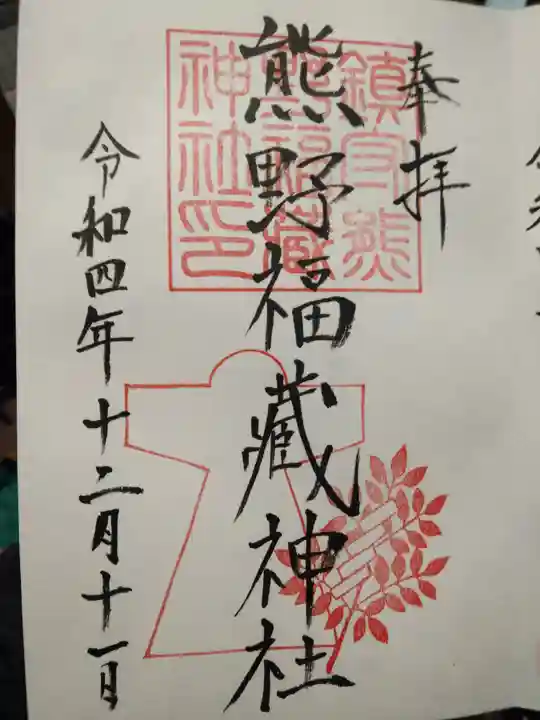 奉拝
熊野福藏神社
令和四年十二月十一日
鎮守熊
野福藏
神社印